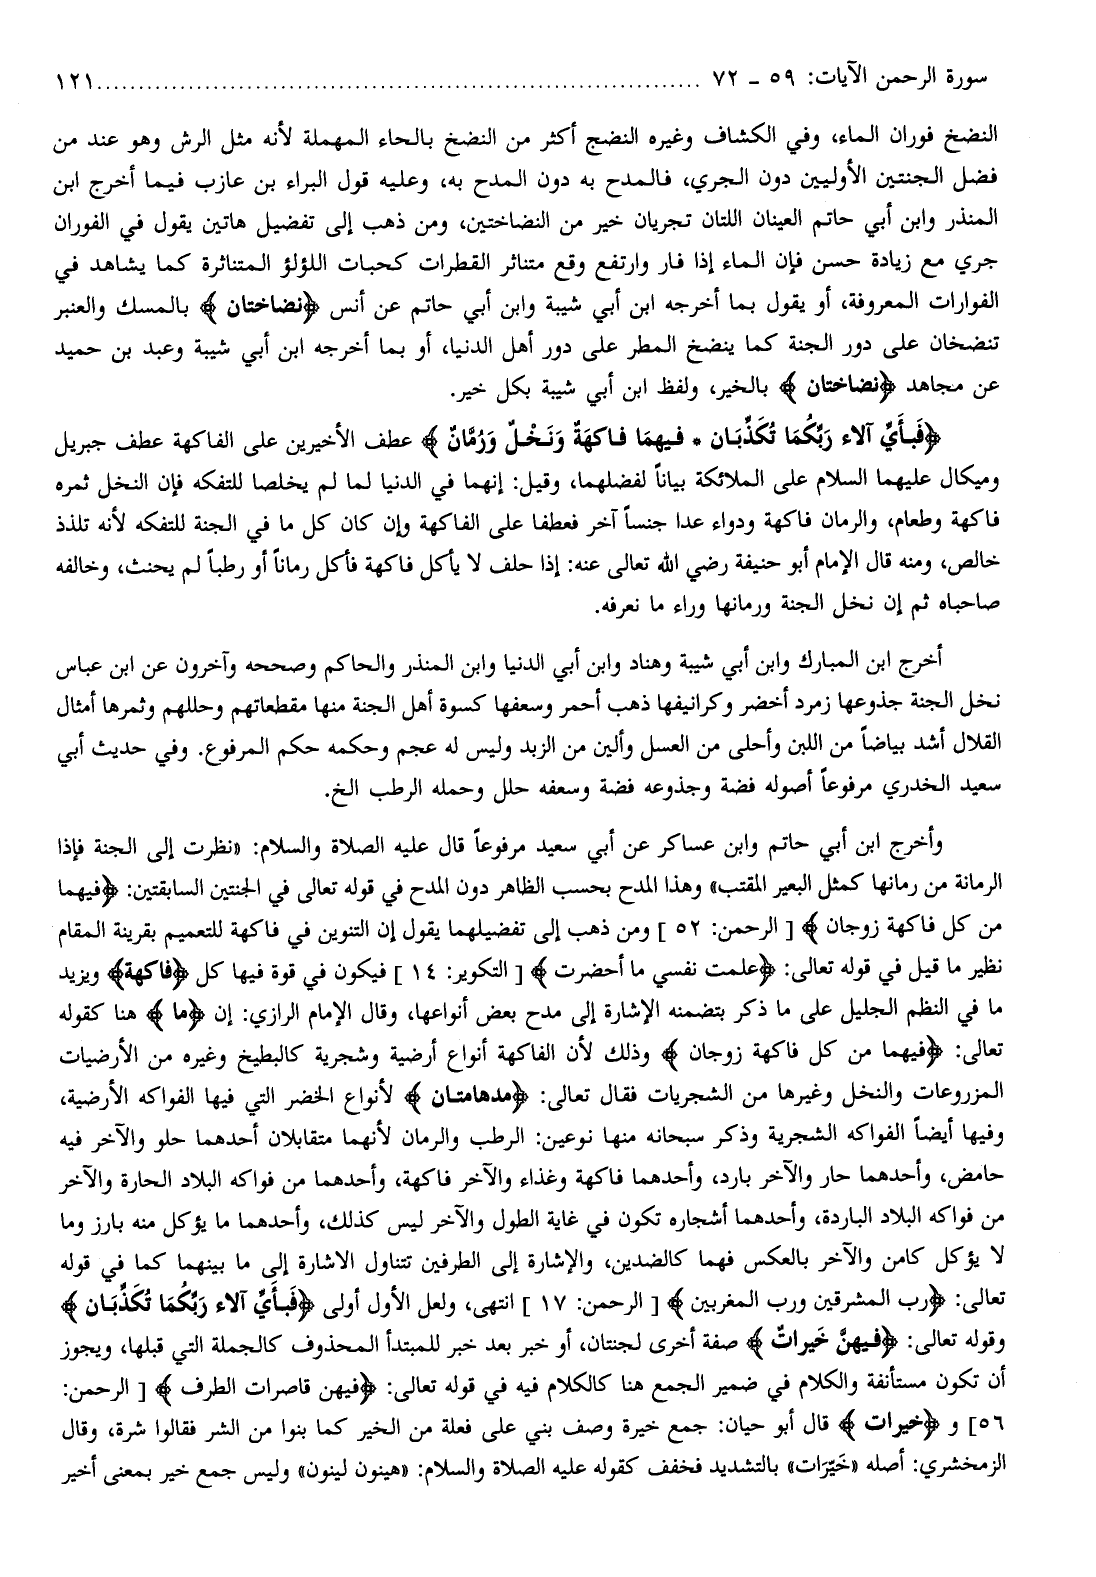 سورة الرحمن الآيات: ٥٩ ـ ٧٢ ........................................................................ ١٢١
النضخ فوران الماء، وفي الكشاف وغيره النضج أكثر من النضخ بالحاء المهملة لأنه مثل الرش وهو عند من
فضل الجنتين الأوليين دون الجري، فالمدح به دون المدح به، وعليه قول البراء بن عازب فيما أخرج ابن
المنذر وابن أبي حاتم العينان اللتان تجريان خير من النضاختين، ومن ذهب إلى تفضيل هاتين يقول في الفوران
جري مع زيادة حسن فإن الماء إذا فار وارتفع وقع متناثر القطرات كحبات اللؤلؤ المتناثرة كما يشاهد في
الفوارات المعروفة، أو يقول بما أخرجه ابن أبي شيبة وابن أبي حاتم عن أنس ﴿نضاختان ﴾ بالمسك والعنبر
تنضخان على دور الجنة كما ينضخ المطر على دور أهل الدنيا، أو بما أخرجه ابن أبي شيبة وعبد بن حميد
عن مجاهد ﴿نضاختان ﴾ بالخير، ولفظ ابن أبي شيبة بكل خير.
﴿فَبأَيِّ آلاء رَبِّكُمَا تُكَذِّبَـان * فـيهمَا فـاكهَةٌ وَنَـخْـلٌ وَرُمَّانٌ ﴾ عطف الأخيرين على الفاكهة عطف جبريل
وميكال عليهما السلام على الملائكة بياناً لفضلهما، وقيل: إنهما في الدنيا لما لم يخلصا للتفكه فإن النخل ثمره
فاكهة وطعام، والرمان فاكهة ودواء عدا جنساً آخر فعطفا على الفاكهة وإن كان كل ما في الجنة للتفكه لأنه تلذذ
خالص، ومنه قال الإمام أبو حنيفة رضي الله تعالى عنه: إذا حلف لا يأكل فاكهة فأكل رماناً أو رطباً لم يحنث، وخالفه
صاحباه ثم إن نخل الجنة ورمانها وراء ما نعرفه.
أخرج ابن المبارك وابن أبي شيبة وهناد وابن أبي الدنيا وابن المنذر والحاكم وصححه وآخرون عن ابن عباس
نخل الجنة جذوعها زمرد أخضر وكرانيفها ذهب أحمر وسعفها كسوة أهل الجنة منها مقطعاتهم وحللهم وثمرها أمثال
القلال أشد بياضاً من اللبن وأحلى من العسل وألين من الزبد وليس له عجم وحكمه حكم المرفوع. وفي حديث أبي
سعيد الخدري مرفوعاً أصوله فضة وجذوعه فضة وسعفه حلل وحمله الرطب الخ.
وأخرج ابن أبي حاتم وابن عساكر عن أبي سعيد مرفوعاً قال عليه الصلاة والسلام: «نظرت إلى الجنة فإذا
الرمانة من رمانها كمثل البعير المقتب» وهذا المدح بحسب الظاهر دون المدح في قوله تعالى في الجنتين السابقتين: ﴿فيهما
من كل فاكهة زوجان ﴾ [ الرحمن: ٥٢ ] ومن ذهب إلى تفضيلهما يقول إن التنوين في فاكهة للتعميم بقرينة المقام
نظير ما قيل في قوله تعالى: ﴿علمت نفسي ما أحضرت ﴾ [ التكوير: ١٤ ] فيكون في قوة فيها كل ﴿فاكهة﴾ ويزيد
ما في النظم الجليل على ما ذكر بتضمنه الإشارة إلى مدح بعض أنواعها، وقال الإمام الرازي: إن ﴿ما ﴾ هنا كقوله
تعالى: ﴿فيهما من كل فاكهة زوجان ﴾ وذلك لأن الفاكهة أنواع أرضية وشجرية كالبطيخ وغيره من الأرضيات
المزروعات والنخل وغيرها من الشجريات فقال تعالى: ﴿مدهامتـان ﴾ لأنواع الخضر التي فيها الفواكه الأرضية،
وفيها أيضاً الفواكه الشجرية وذكر سبحانه منها نوعين: الرطب والرمان لأنهما متقابلان أحدهما حلو والآخر فيه
حامض، وأحدهما حار والآخر بارد، وأحدهما فاكهة وغذاء والآخر فاكهة، وأحدهما من فواكه البلاد الحارة والآخر
من فواكه البلاد الباردة، وأحدهما أشجاره تكون في غاية الطول والآخر ليس كذلك، وأحدهما ما يؤكل منه بارز وما
لا يؤكل كامن والآخر بالعكس فهما كالضدين، والإشارة إلى الطرفين تتناول الاشارة إلى ما بينهما كما في قوله
تعالى: ﴿رب المشرقين ورب المغربين ﴾ [ الرحمن: ١٧ ] انتهى، ولعل الأول أولى ﴿فَبأَيِّ آلاء رَبِّكُمَا تُكَذِّبَـان ﴾
وقوله تعالى: ﴿فـيهنَّ خَيراتٌ ﴾ صفة أخرى لجنتان، أو خبر بعد خبر للمبتدأ المحذوف كالجملة التي قبلها، ويجوز
أن تكون مستأنفة والكلام في ضمير الجمع هنا كالكلام فيه في قوله تعالى: ﴿فيهن قاصرات الطرف ﴾ [ الرحمن:
٥٦] و ﴿خيرات ﴾ قال أبو حيان: جمع خيرة وصف بني على فعلة من الخير كما بنوا من الشر فقالوا شرة، وقال
الزمخشري: أصله «خَيِّرَات» بالتشديد فخفف كقوله عليه الصلاة والسلام: «هينون لينون» وليس جمع خير بمعنى أخير